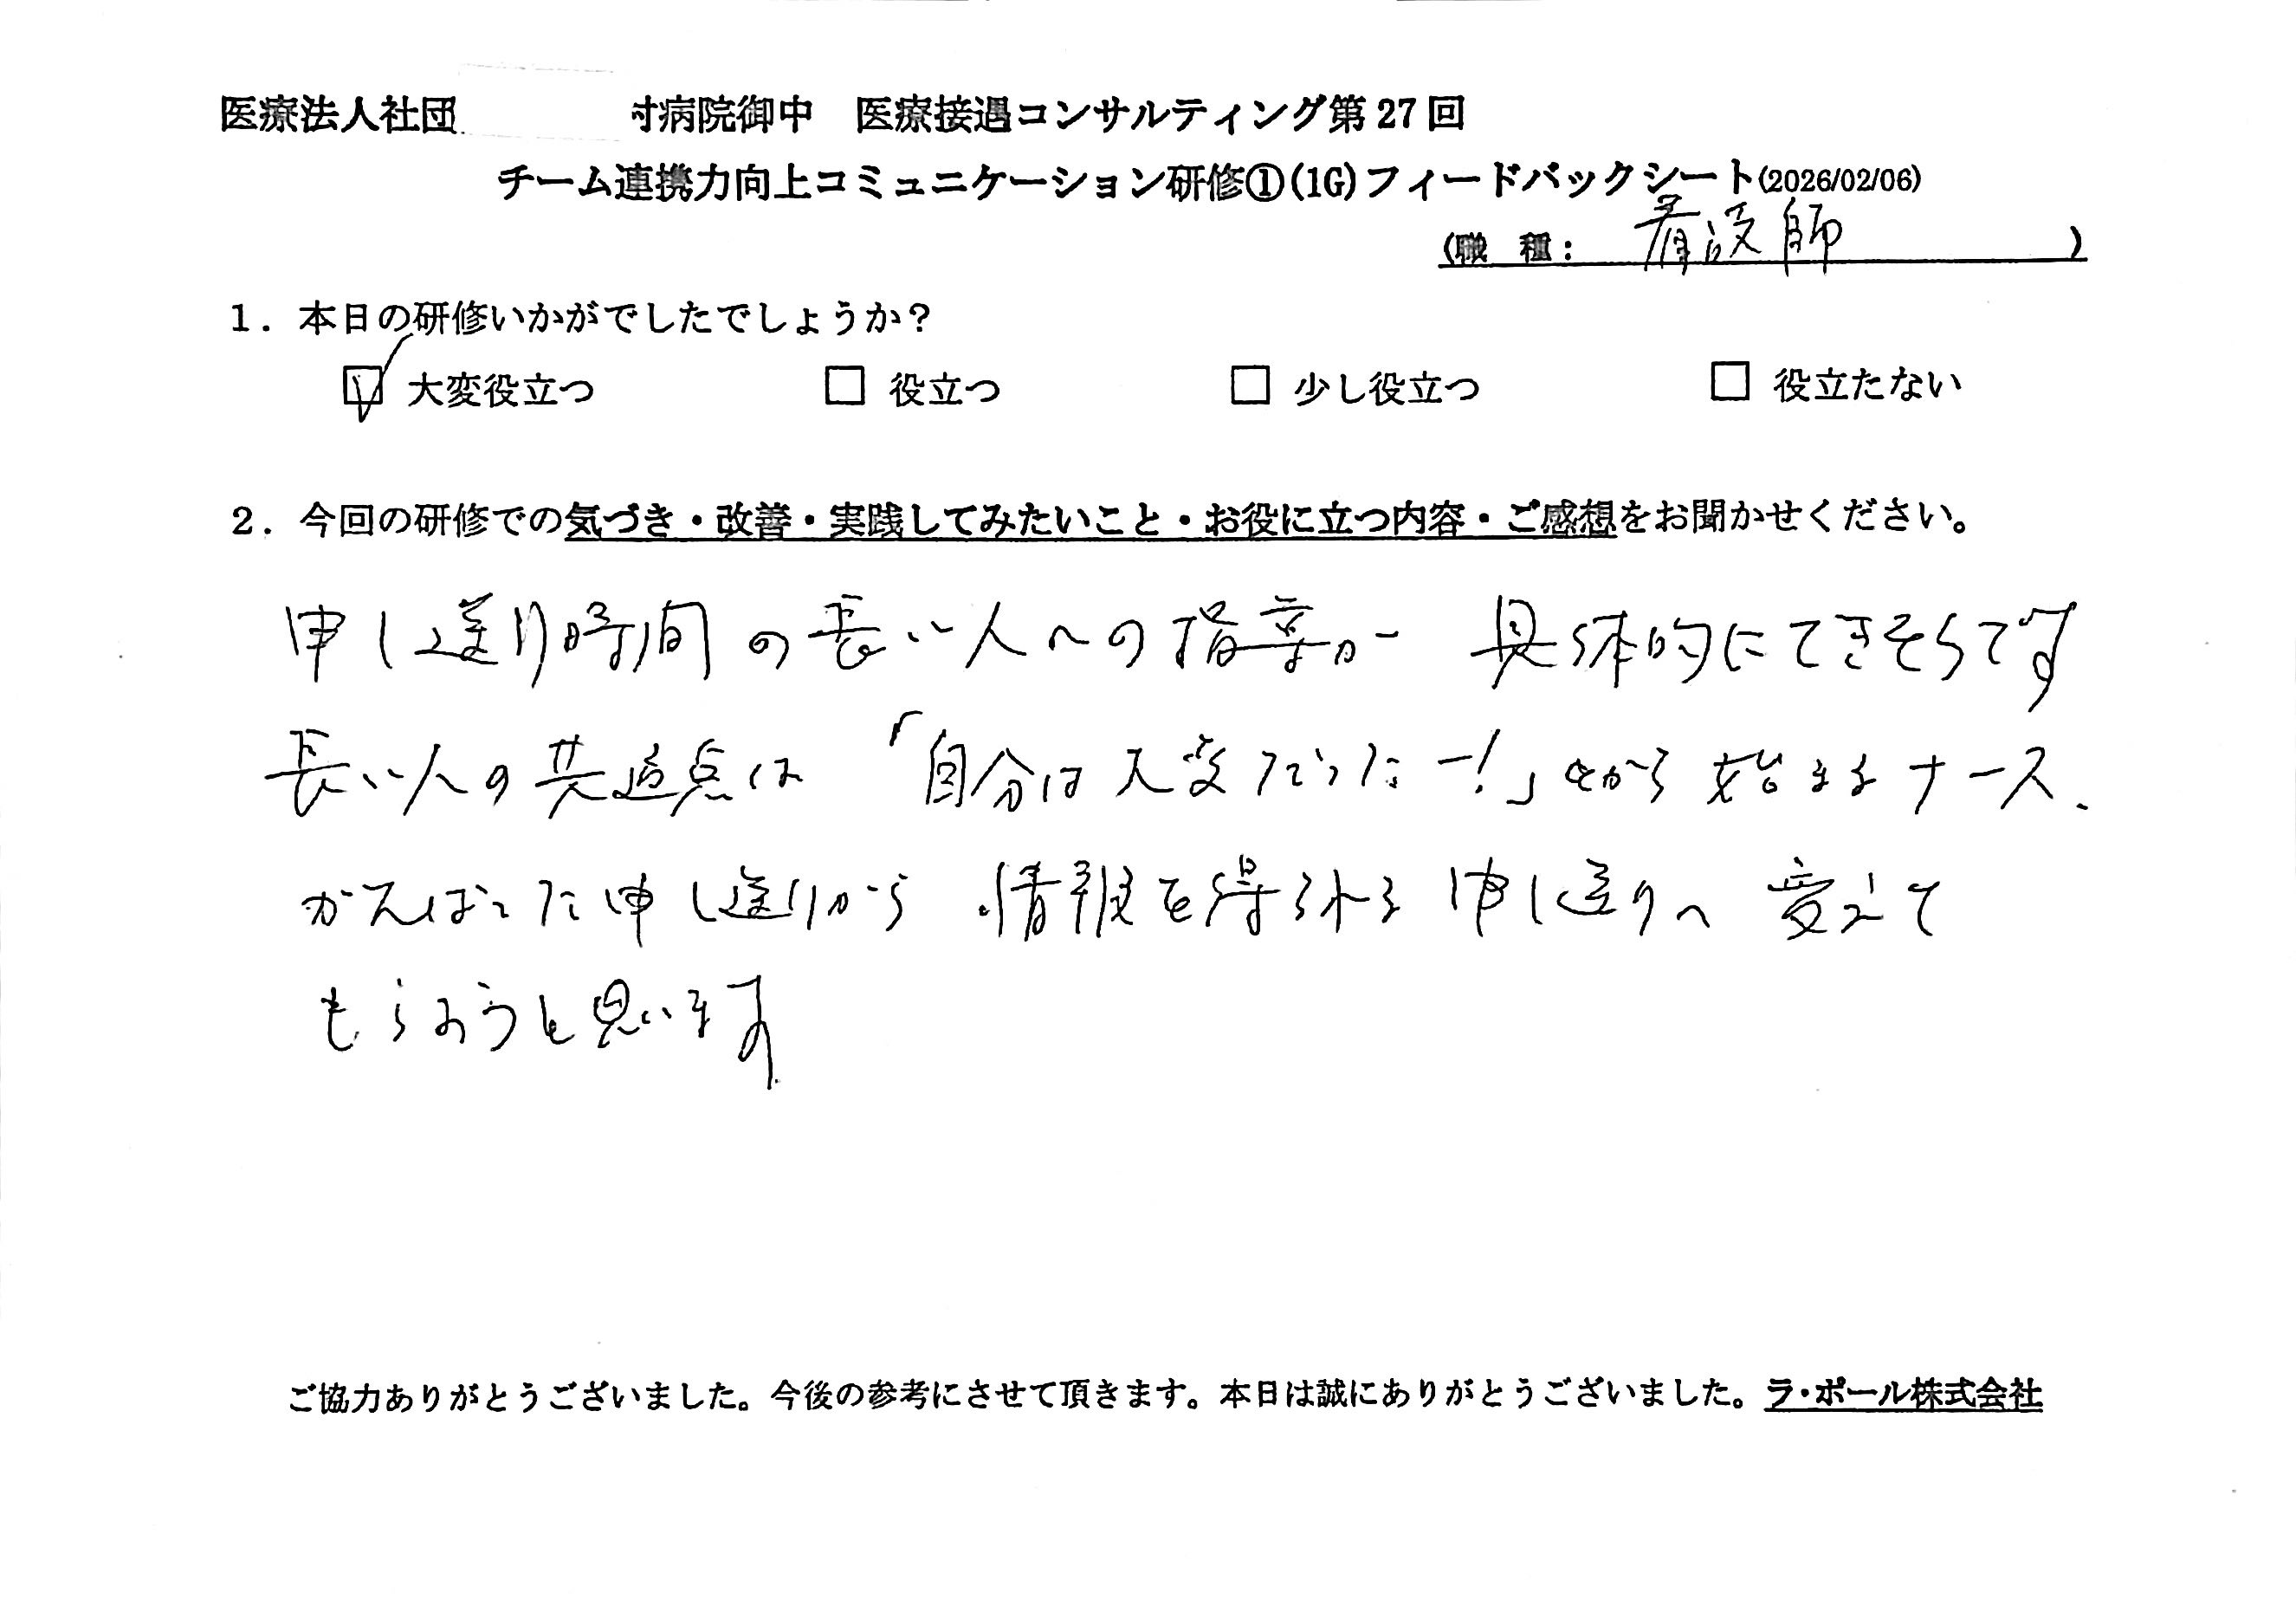 医療法人社団 病院御中 医療接遇コンサルティング第27回
チーム連携力向上コミュニケーション研修①(1G)フィードバックシート(2026/02/06)
(職 種: 看護師 )
1. 本日の研修いかがでしたでしょうか?
☑ 大変役立つ □ 役立つ □ 少し役立つ □ 役立たない
2. 今回の研修での気づき・改善・実践してみたいこと・お役に立つ内容・ご感想をお聞かせください。
申し送り時間の長い人への指導が 具体的にできそうです
長い人の共通点は 「自分は大変だったー!」とから 始まるナース.
がんばった申し送りから 情報を得られる 申し送りへ 変えて
もらおうと思います
ご協力ありがとうございました。今後の参考にさせて頂きます。本日は誠にありがとうございました。ラ・ポール株式会社